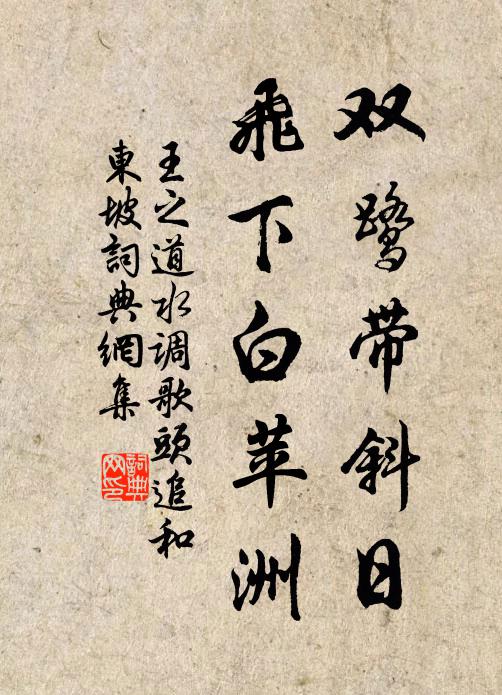 双鹭带斜日
飞下白苹洲
王之道水调歌頭追和
東坡詞典網集
詞典网印